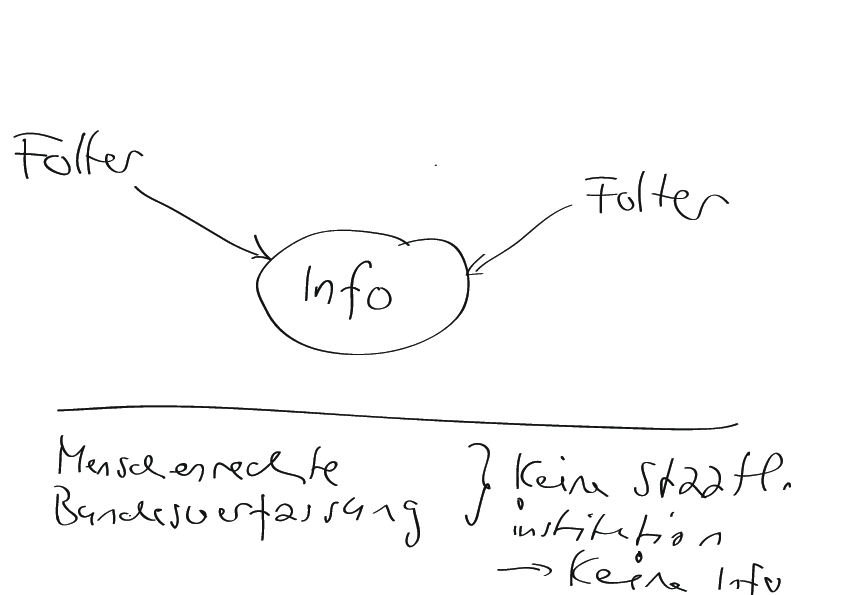 Folter
Folter
Info
Menschenrechte
Bundesverfassung
} Keine staatl.
institution
→ Keine Info